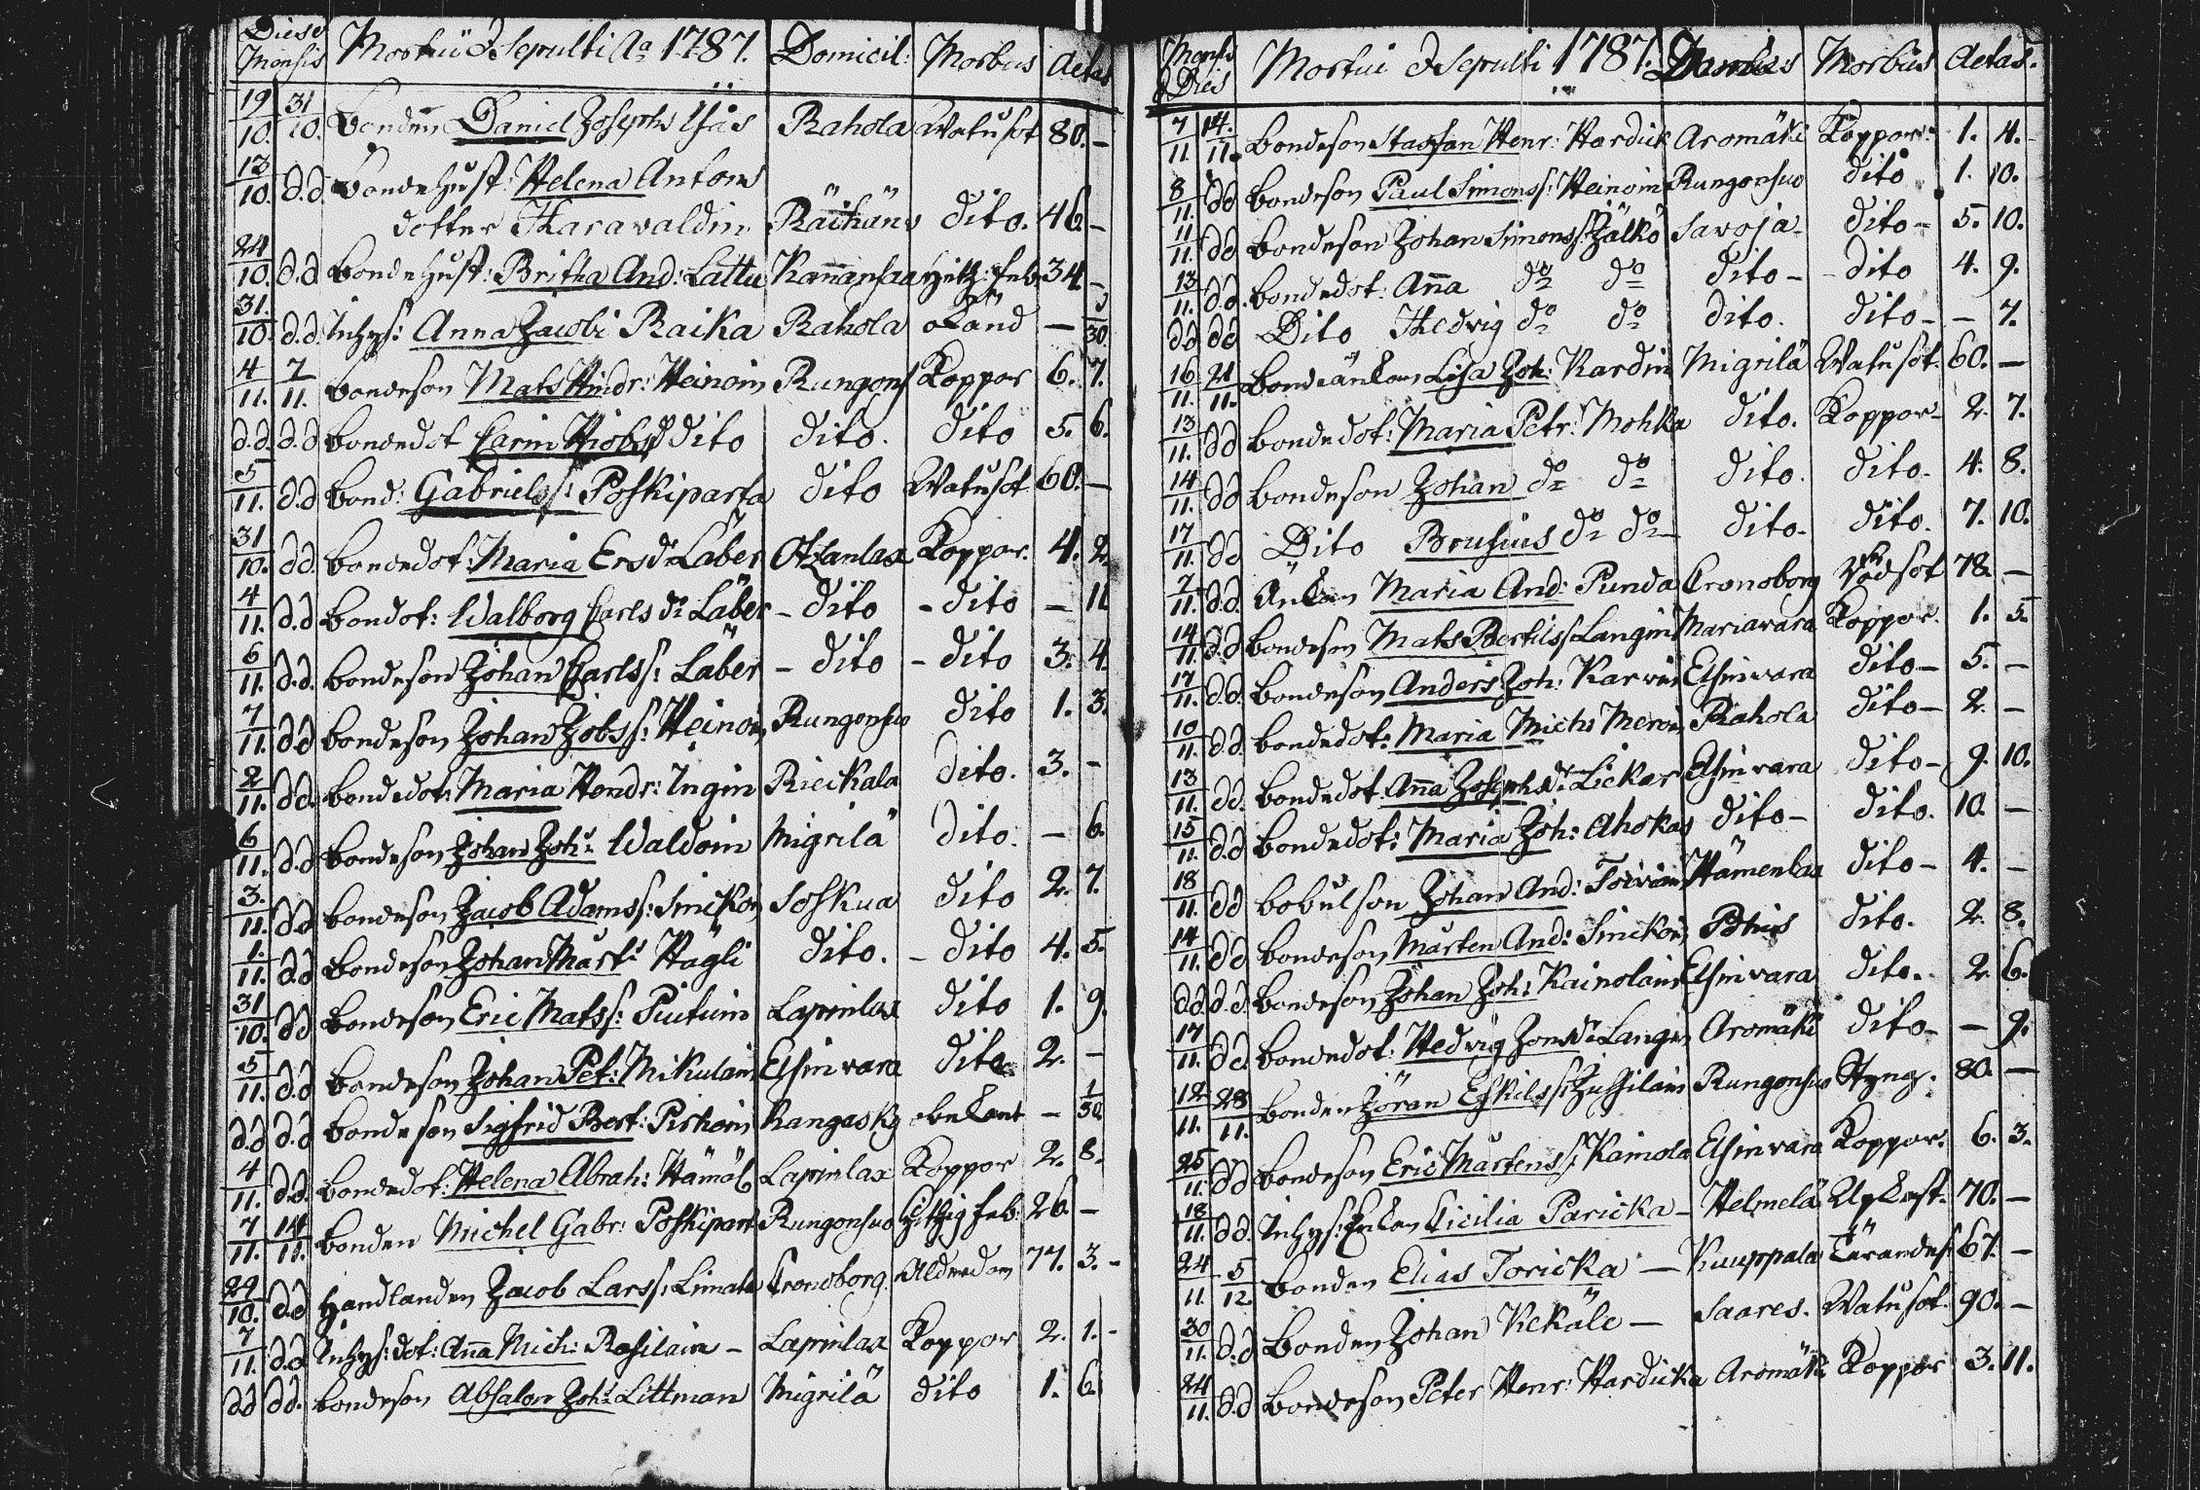 Dies & Mensis Mortui & Sepulti Ao 1787. Domicil: Morbus Aetas
19/10. 31/10. Bonden Daniel Josephs Rahola Watusot 80. -
13/10. d.d. Bonde Hust: Helena Antons
dotter Karavaldin Räihäns dito. 46. -
24/10. d.d Bonde Hust: Britha And: Lattu Kan̄ansaa Hitz: feb: 34 -
31./10. d.d. Inhys: Anna Jacobi Raika Rahola okänd - /30
4/11. 7/11. bondeson Mats Hindr: Heinoin Rungons Koppor 6. 7.
d.d. d.d bondedot Carin dito dito. dito 5. 6.
5/11. d.d bond: Gabriels: Poskiparta dito Watusot 60. -
31/10. dd. bondedot: Maria Ersdr Läber Otzanlax Koppor. 4. 2.
4/11. d.d bondot: Walborg Carls dr Läber - dito - dito - 11
6/11. d.d. bondeson Johan Carlss: Läber - dito - dito 3. 4.
7/11. dd bondeson Johan Jobss: Heinoin Rungonsuo dito 1. 3.
2/11. dd. bondedot: Maria Hendr: Ingin Rieckala dito. 3. -
6/11. d.d bondeson Johan Joh: Waldoin Migrilä dito. - 6.
3./11. d.d bondeson Jacob Adamss: Sinckoin Soskua dito 2. 7.
1./11. d.d bondeson Johan Mårt: Hägli dito. - dito 4. 5.
31/10. dd bondeson Eric Matss: Piutuin Lapinlax dito 1. 9.
5/11. d.d bondeson Johan Pet: Mikulain Elsinvara dito 2. -
d.d d.d bondeson Sigfrid Bert: Pirhoin Kangasky obekant - 1/30
4/11. d.d. bondedot: Helena Abrah: Hämäl Lapinlax Koppor 2. 8.
7/11. 14/11. bonden Michel Gabr: Poskipart Rungonsuo Hitzig feb: 26 -
29/10. d.d Handlanden Jacob Larss: Limata Cronoborg. Ålderdom 77. 3. -
7/11. d.d Inhys: dot: An̄a Mich: Rasilain - Lapinlax Koppor 2. 1. -
dd dd. bondeson Absalon Joh: Littman Migrilä dito 1. 6.
Mensis & Dies Mortui & Sepulti 1787. Morbus Aetas.
7/11. 14./11. bondeson Staffan Henr: Hardick Aromäki Koppor. 1. 4.
8/11. dd bondeson Paul Simonss: Heinoin Rungonsuo dito 1. 10.
11/11. dd bondeson Johan Simonss: Jälkö Savoja. dito - 5. 10.
13/11. d.d. bondedot: An̄a do do dito - - dito 4. 9.
dd dd Dito Hedvig do do dito. dito - - 7.
16/11. 21/11. bondeänkan Lisa Joh: Kardin Migrilä Watusot. 60. -
13/11. dd bondedot: Maria Petr: Mohka dito. Koppor - 2. 7.
14/11. dd bondeson Johan do do dito. dito. 4. 8.
17/11. dd Dito Brusius do do dito. dito. 7. 10.
7/11. d.d. Änkan Maria And: Punda Cronoborg 78. -
14/11. d.d bondeson Mats Bertilss: Langin Mariavara Koppor. 1. 5.
17/11. d.d. bondeson Anders Joh: Karvin Elsinvara dito - 5. -
10/11. d.d. bondedot: Maria Michs Meroin Rahola dito - 2. -
13/11. dd. bondedot: An̄a Josephs dr Lickar Elsinvara dito - 9. 10.
15/11. d.d bondedot: Maria Joh: Ahokas dito - dito. 10. -
18/11. dd bobulson Johan And: Toivoin Hämenlax dito - 4. -
14/11. dd bondeson Mårten And: Sinckoin dito. 2. 8.
dd d.d bondeson Johan Joh: Kainolain Elsinvara dito. 2. 6.
17/11. dd. bondedot: Hedvig Jonsdr Langin Aromäki dito - - 9.
12/11. 28/11. bonden Jöran Eskilss: Jussilain Rungonsuo Styng. 80. -
25/11. dd bondeson Eric Mårtenss: Kainola Elsinvara Koppor. 6. 3.
18/11. d.d. Inhys: Enkan Cicilia Paricka - Helmelä 70. -
24/11. 5/12. bonden Elias Toricka - Kuuppala 67. -
30/11. d.d bonden Johan Kekäle - Saares. Watusot. 90. -
24/11. d.d bondeson Peter Henr: Harducka Aromäki Koppor 3. 11.